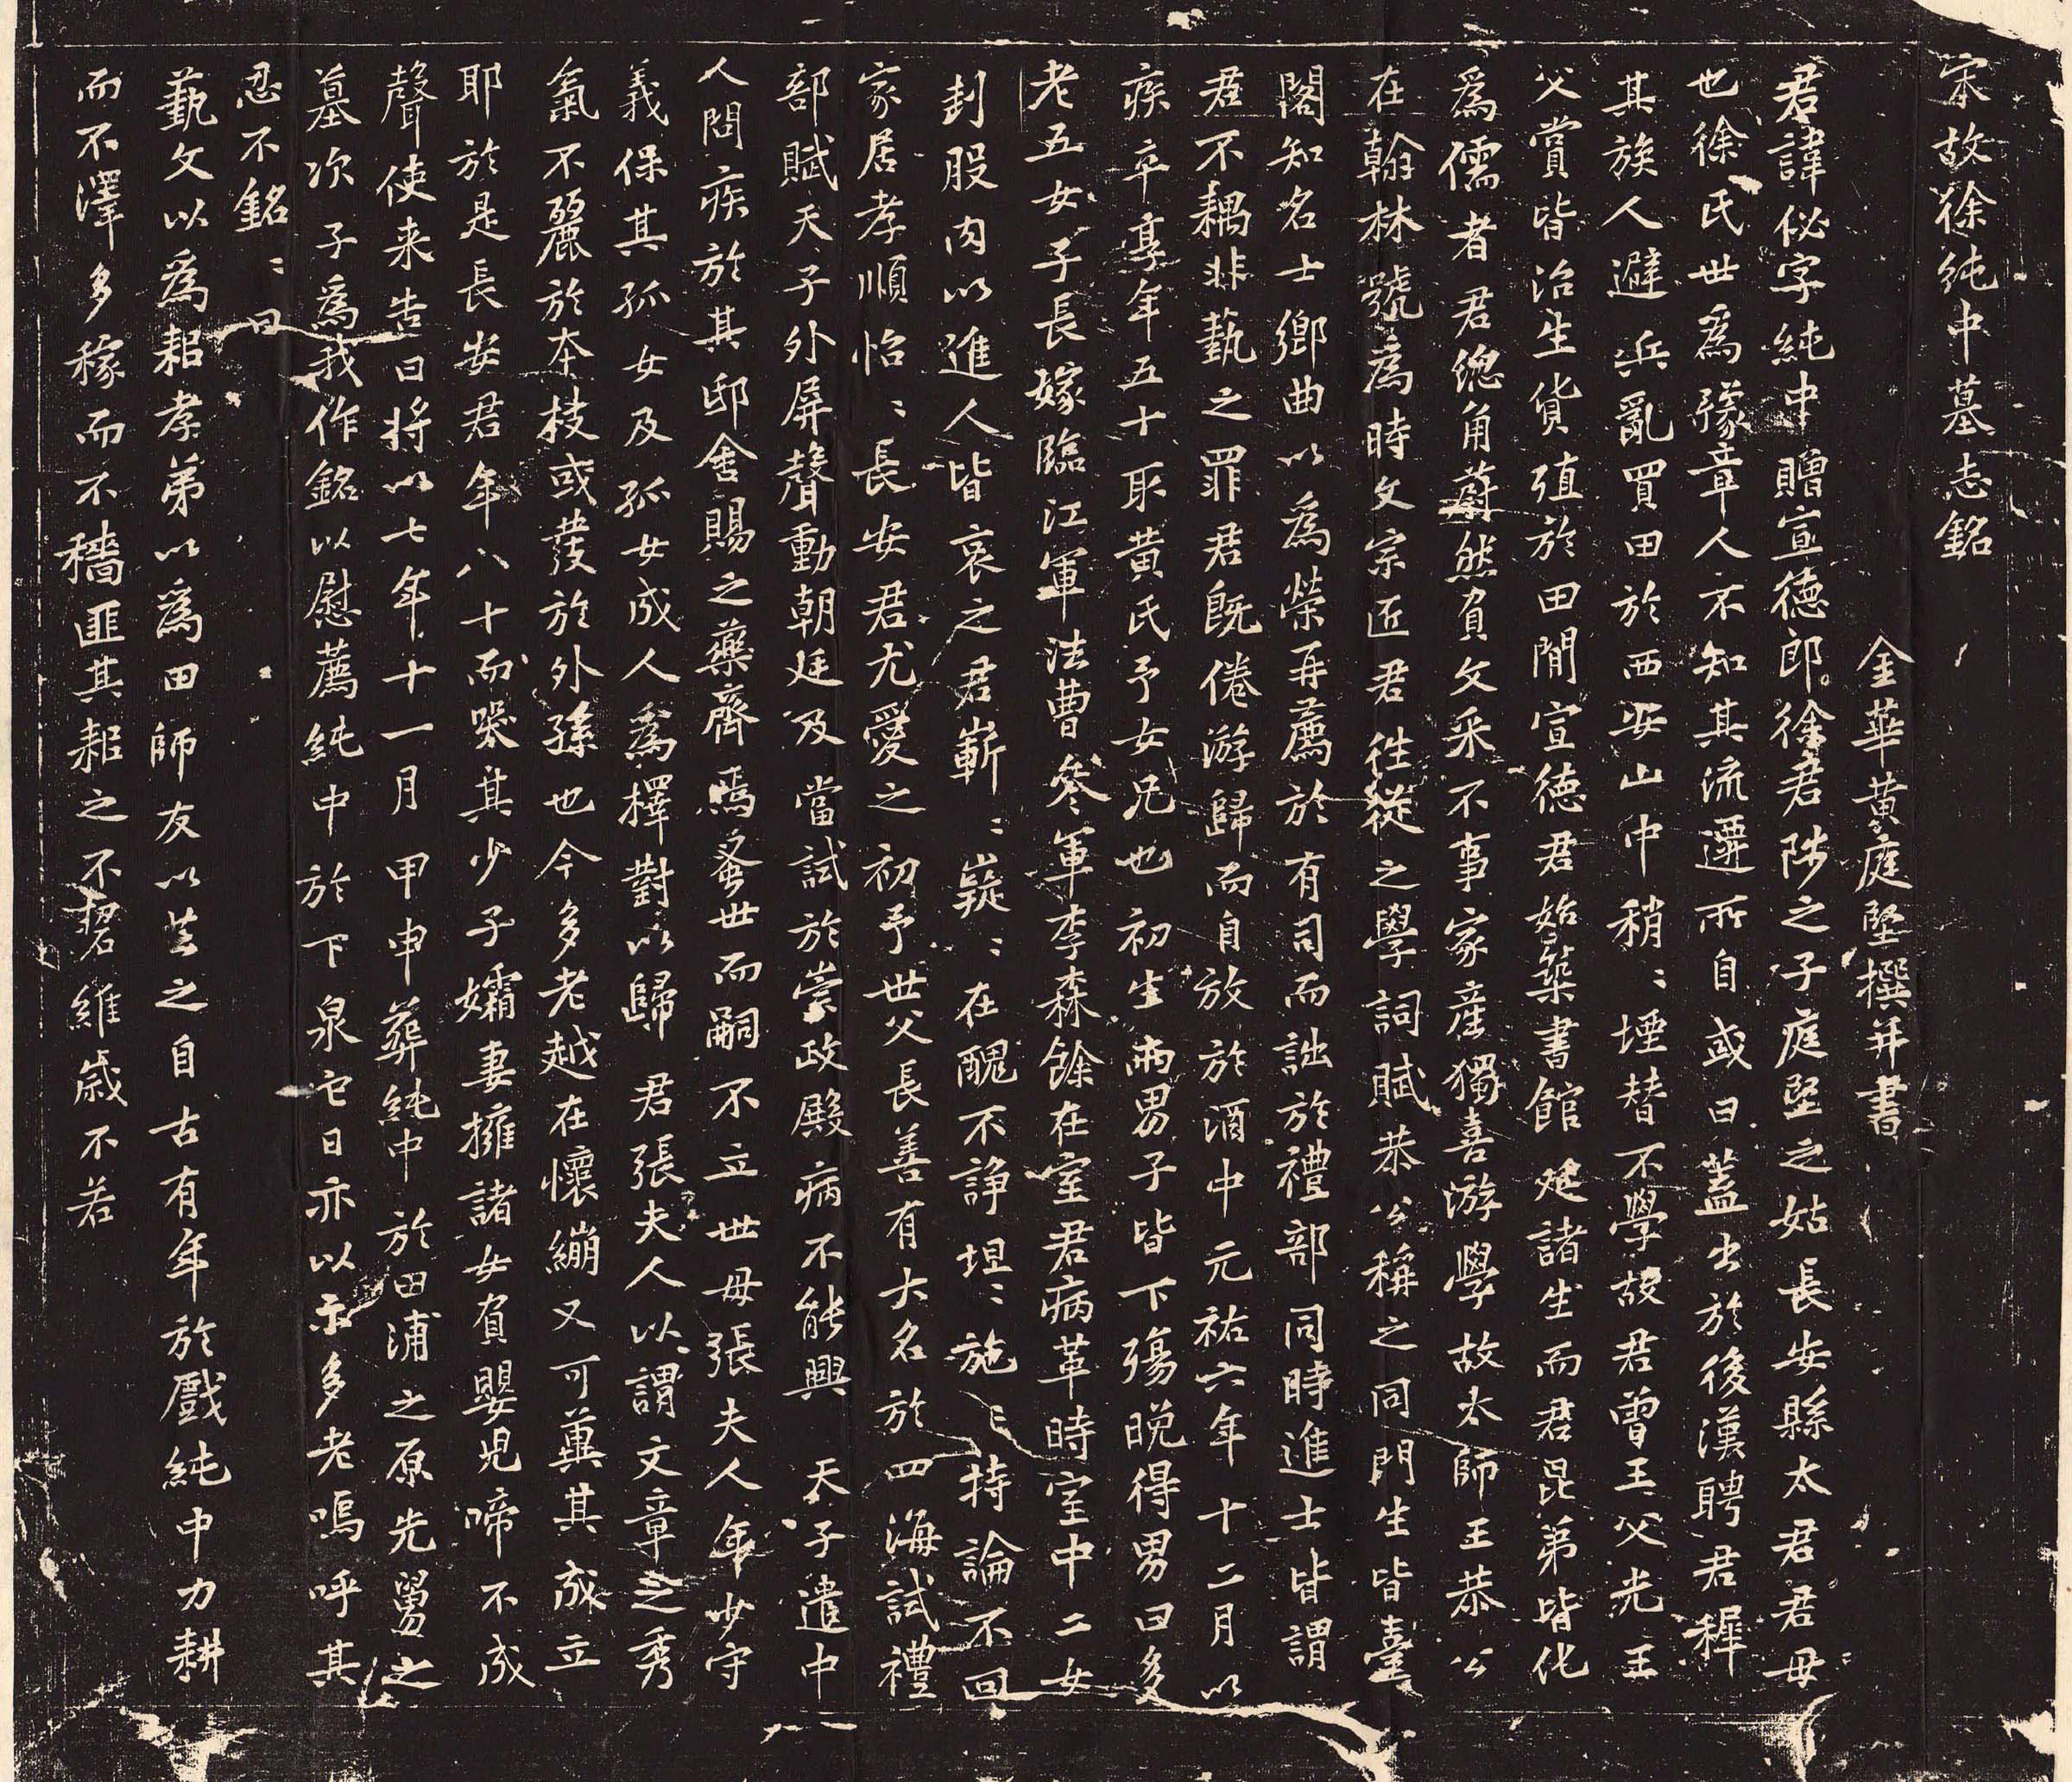 宋故徐純中墓志銘
金華黃庭堅撰并書
君諱佖字純中贈宣德郎徐君陟之子庭堅之姑長安縣太君君母
也徐氏世為豫章人不知其流遷所自或曰蓋出於後漢聘君稺
其族人避兵亂買田於西安山中稍〻堙替不學故君曾王父光王
父賞皆治生貨殖於田閒宣德君始築書館延諸生而君昆弟皆化
為儒者君總角蔚然負文采不事家產獨喜游學故太師王恭公
在翰林號為時文宗匠君往從之學詞賦恭公稱之同門生皆臺
閣知名士鄉曲以為榮再薦於有司而詘於禮部同時進士皆謂
君不耦非藝之罪君既倦游歸而自放於酒中元祐六年十二月以
疾卒享年五十取黃氏予女兄也初生兩男子皆下殤晚得男曰多
老五女子長嫁臨江軍法曹參軍李森餘在室君病革時室中二女
刲股肉以進人皆哀之君嶄〻嶷〻在醜不諍坦〻施〻持論不回
家居孝順怡〻長安君尤愛之初予世父長善有大名於四海試禮
部賦天子外屏聲動朝廷及當試於崇政殿病不能興天子遣中
人問疾於其邸舍賜之藥齊焉蚤世而嗣不立世母張夫人年少守
義保其孤女及孤女成人為擇對以歸君張夫人以謂文章之秀
氣不麗於本枝或發於外孫也今多老越在懷繃又可冀其成立
耶於是長安君年八十而哭其少子孀妻擁諸女負嬰兒啼不成
聲使来告曰将以七年十一月甲申葬純中於田浦之原先舅之
墓次子為我作銘以慰薦純中於下泉它日亦以示多老嗚呼其
忍不銘〻曰
藝文以為耜孝弟以為田師友以芸之自古有年於戲純中力耕
而不澤多稼而不穡匪其耜之不䂮維歲不若